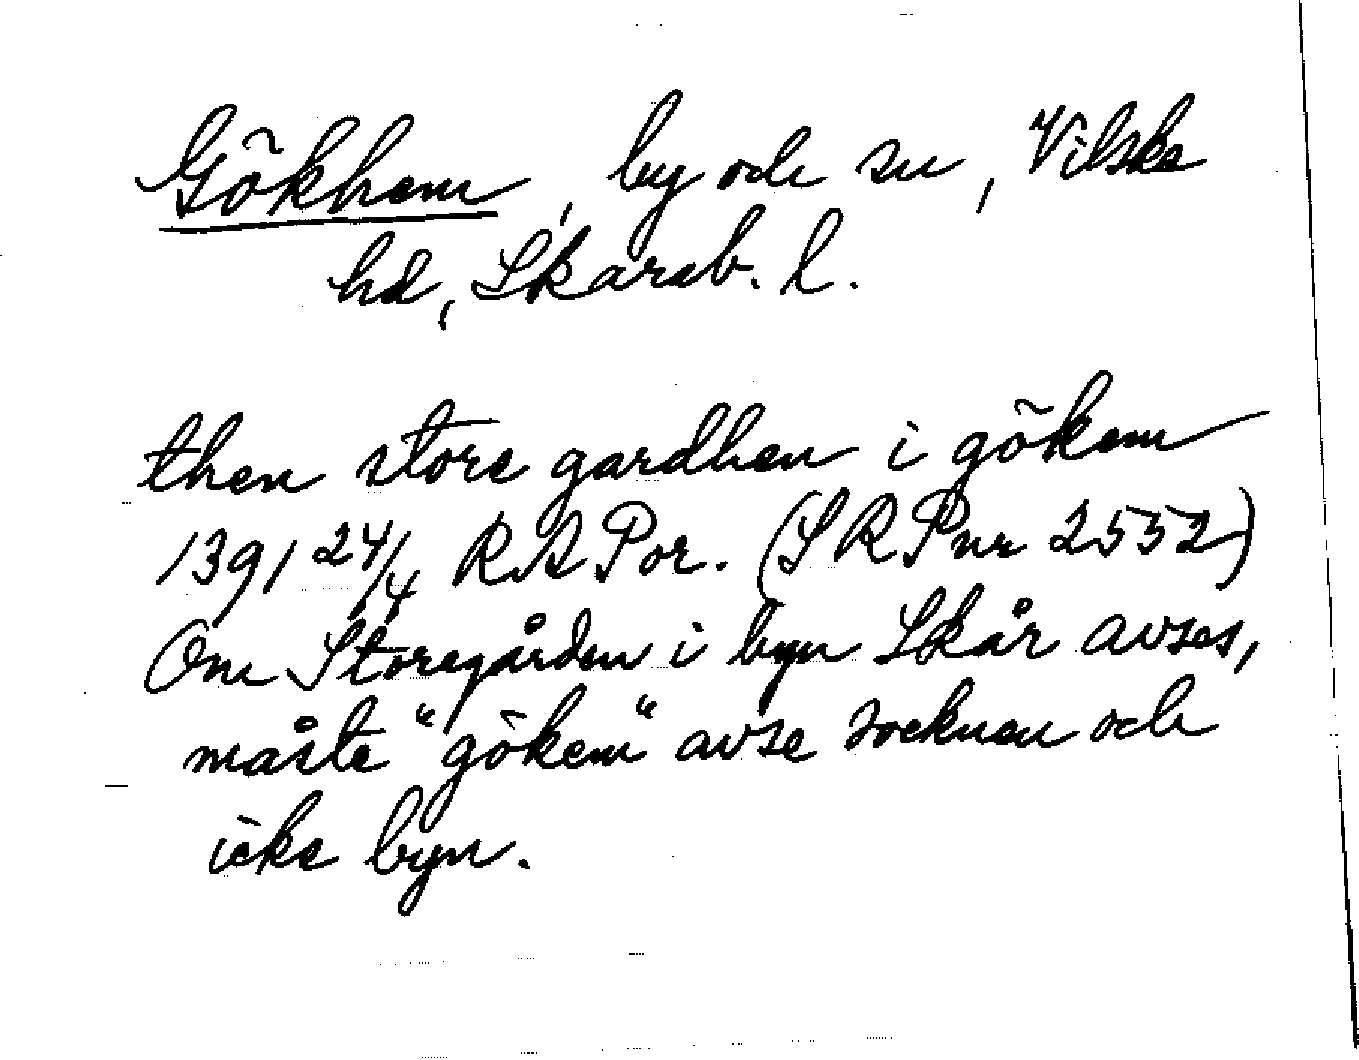 Gökhem, by och sn, Vilske
hd, Skarab. l.
then store gardhen i gökem
1391 24/4 RA Por. (SRP nr 2552)
Om Storegården i byn Skår avses,
måste "gökem" avse socknen och
icke byn.